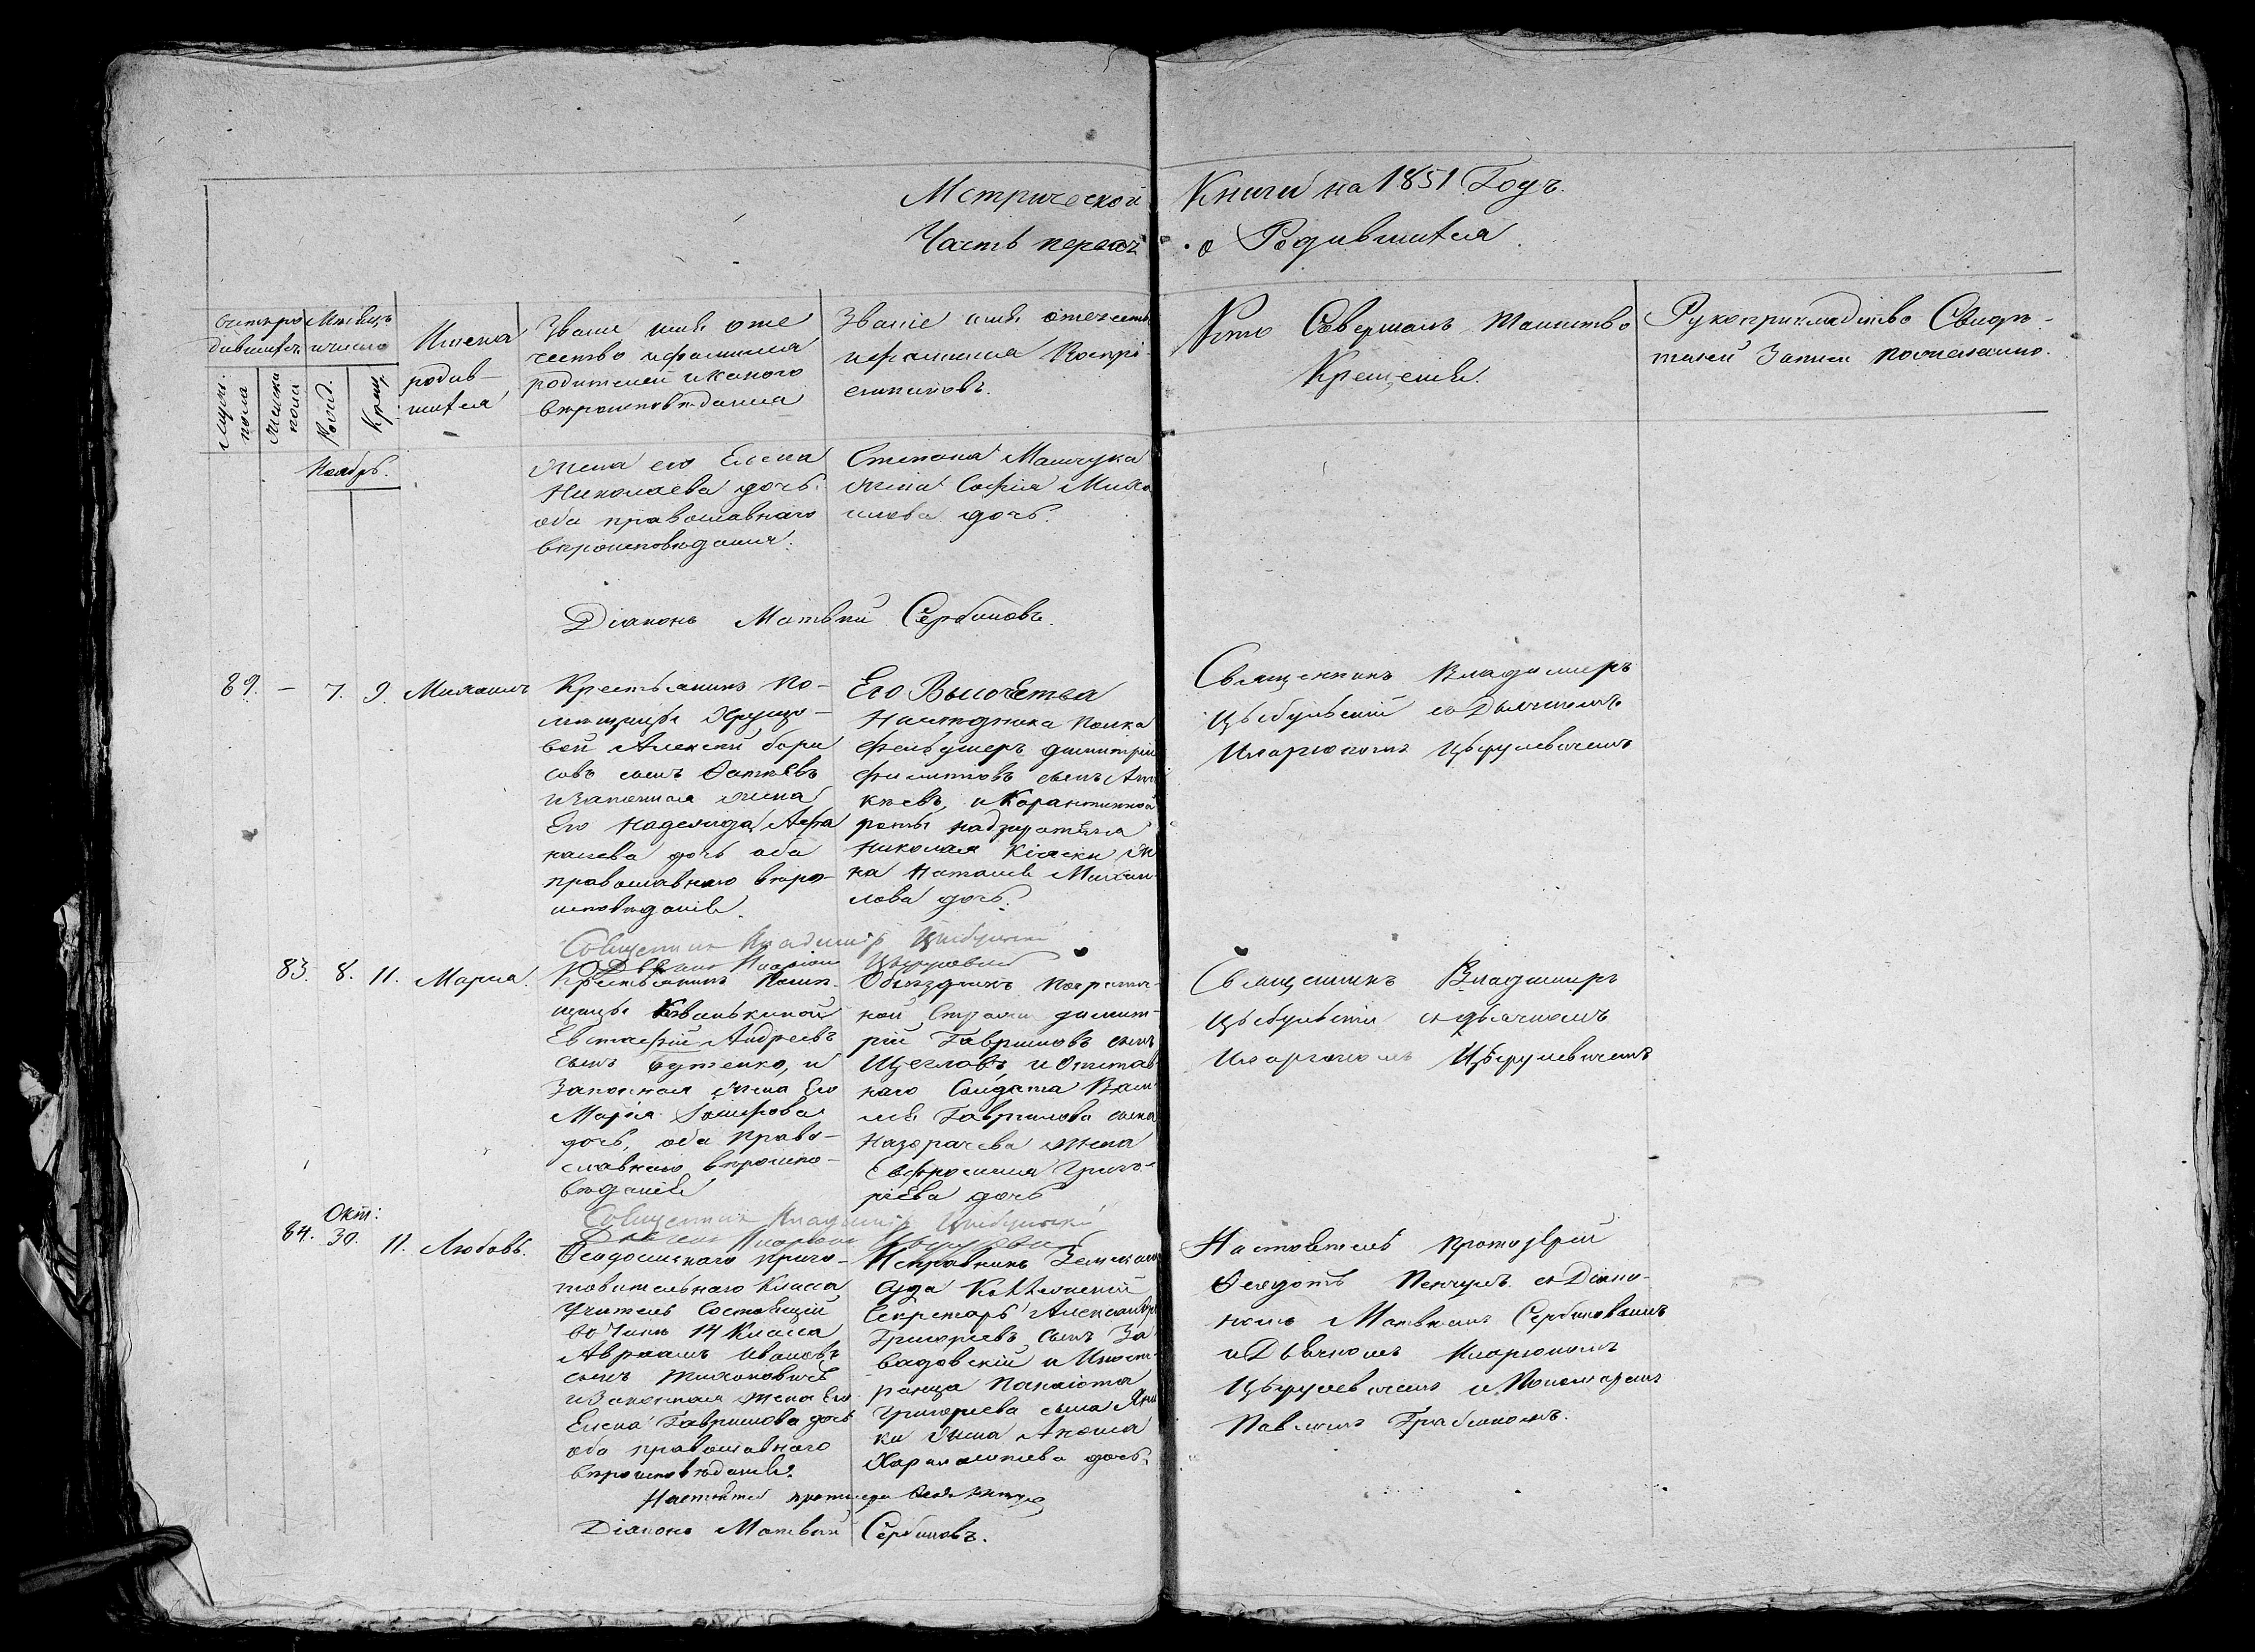 Метрической Книги на 1851 Годъ.
Часть первая о Родившихся.
Счетъ ро
дившихся
Мужс. пола
Женска пола
Мѣсяцъ
и число
Рожд.
Крещ.
Имена
родив-
шихся
Званіе имя оте
чество и фамилія
родителей и какого
вѣроисповѣданія
Званіе имя отечест
и фамилія Воспрі-
емниковъ.
Кто Совершалъ Таинство
Крещенія.
Рукоприкладство Свидѣ-
телей Записи по желанію.
Ноябрь.
жена его Елена
Николаева дочь
оба православнаго
вѣроисповѣданія.
Степана
жена Софія Миха
илова дочь.
Діаконъ Матвѣй Сербиновъ.
89. – 7. 9. Михаилъ
Крестьянинъ по-
мѣщицы Хрущо-
вой Алексѣй бори
совъ сынъ
и законная жена
Его Надежда Афа
насьева дочь оба
православнаго вѣро-
исповѣданія.
Его Высочества
Наслѣдника полка
фельдшеръ димитрій
филиповъ сынъ
и Карантинной
роты надзирателя
Николая
на Наталія Михаи-
лова дочь.
Священникъ Владимиръ
Цыбульскій съ Дьячкомъ
Иларіономъ Цѣрулевичемъ
Священникъ Владиміръ Цыбульскій
83. 8. 11. Марія.
Крестьянинъ Помѣ-
щицы
Евстафій Андреевъ
сынъ Бутенко, и
Законная жена Его
Марія
дочь, оба право-
славнаго вѣроиспо-
вѣданія
Объѣздчикъ погранич-
ной Стражи димит-
рій Гавриловъ сынъ
Щегловъ и Отстав-
наго Солдата Васи
лія Гаврилова сына
Назорачева жена
Евфросинія Григо-
ріева дочь
Священникъ Владимиръ
Цыбульскій съ дьячкомъ
Иларіономъ Цѣрулевичемъ
Священникъ Владиміръ Цыбульскій
84. Окт: 30. 11. Любовь.
Феодосійскаго приго-
товительнаго Класса
Учитель Состоящій
въ Чинѣ 14 Класса
Авраамъ Ивановъ
сынъ Тихоновичъ
и Законная жена Его
Елена Гаврилова дочь
оба православнаго
вѣроисповѣданія.
Исправникъ Земскаго
Суда Коллежскій
Секретарь Александръ
Григорьевъ Сынъ За
вадовскій и Иност-
ранца Панаіота
Григорьева сына
ки жена
Харалампіева дочь.
Настоятель Протоіерей
Феодотъ съ Діако-
номъ Матвѣемъ Сербиновымъ
и Дьячкомъ Иларіономъ
Цѣрулевичемъ и Пономаремъ
Павломъ
Настоятель протоіерей
Діаконъ Матвѣй Сербиновъ.